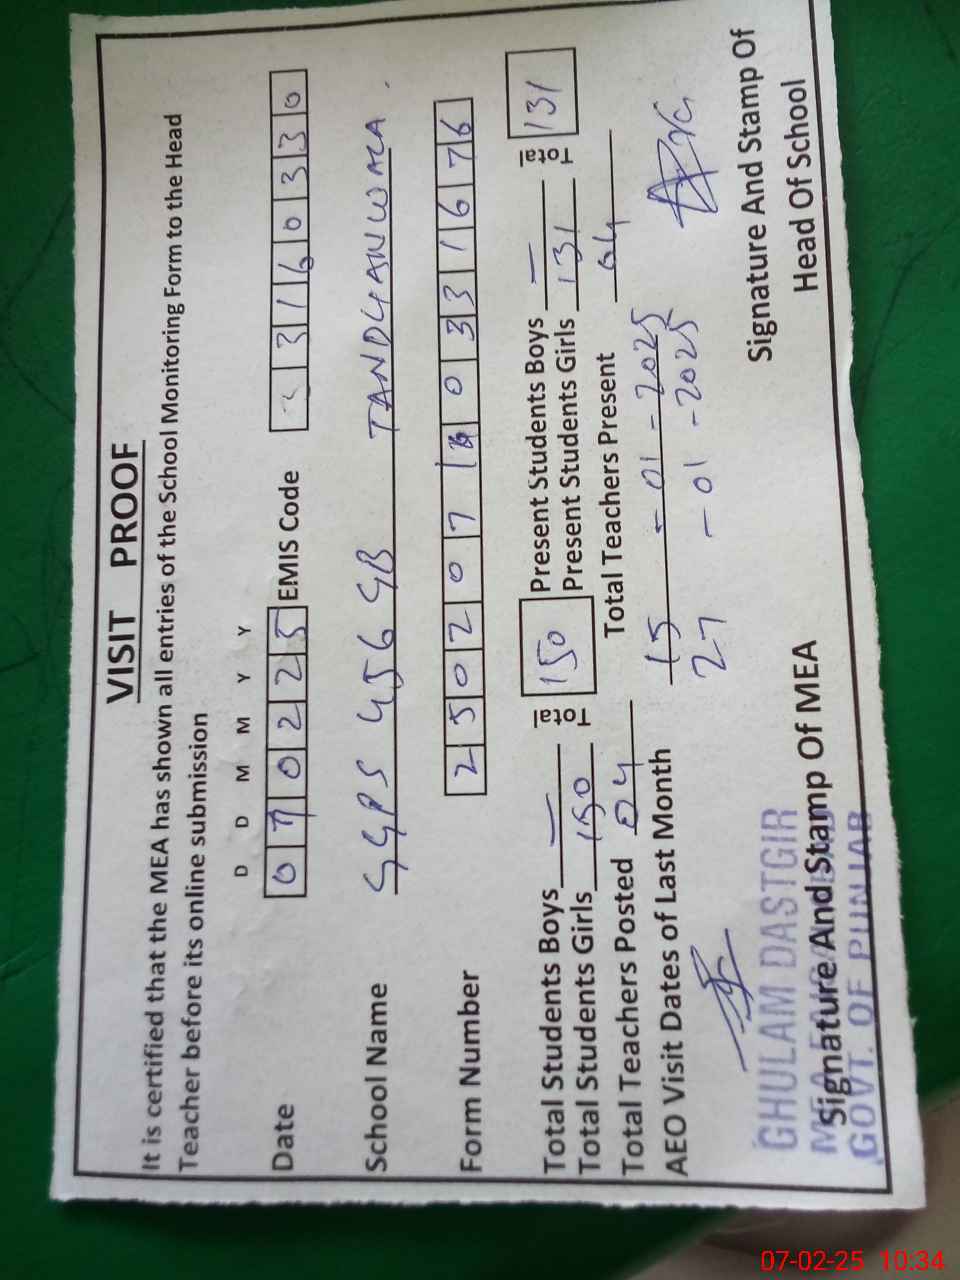 VISIT PROOF
It is certified that the MEA has shown all entries of the School Monitoring Form to the Head
Teacher before its online submission
D D M M Y Y
Date 070225 EMIS Code 33160330
School Name GGPS 456 GB TANDLIANWALA
Form Number 2502071603316 76
Total Students Boys — Total 150 Present Students Boys — Total 131
Total Students Girls 150 Present Students Girls 131
Total Teachers Posted 04 Total Teachers Present 04
AEO Visit Dates of Last Month 15 - 01 - 2025
27 - 01 - 2025
GHULAM DASTGIR
MEA
Signature And Stamp Of MEA
GOVT. OF PUNJAB
Signature And Stamp Of
Head Of School
07-02-25 10:34